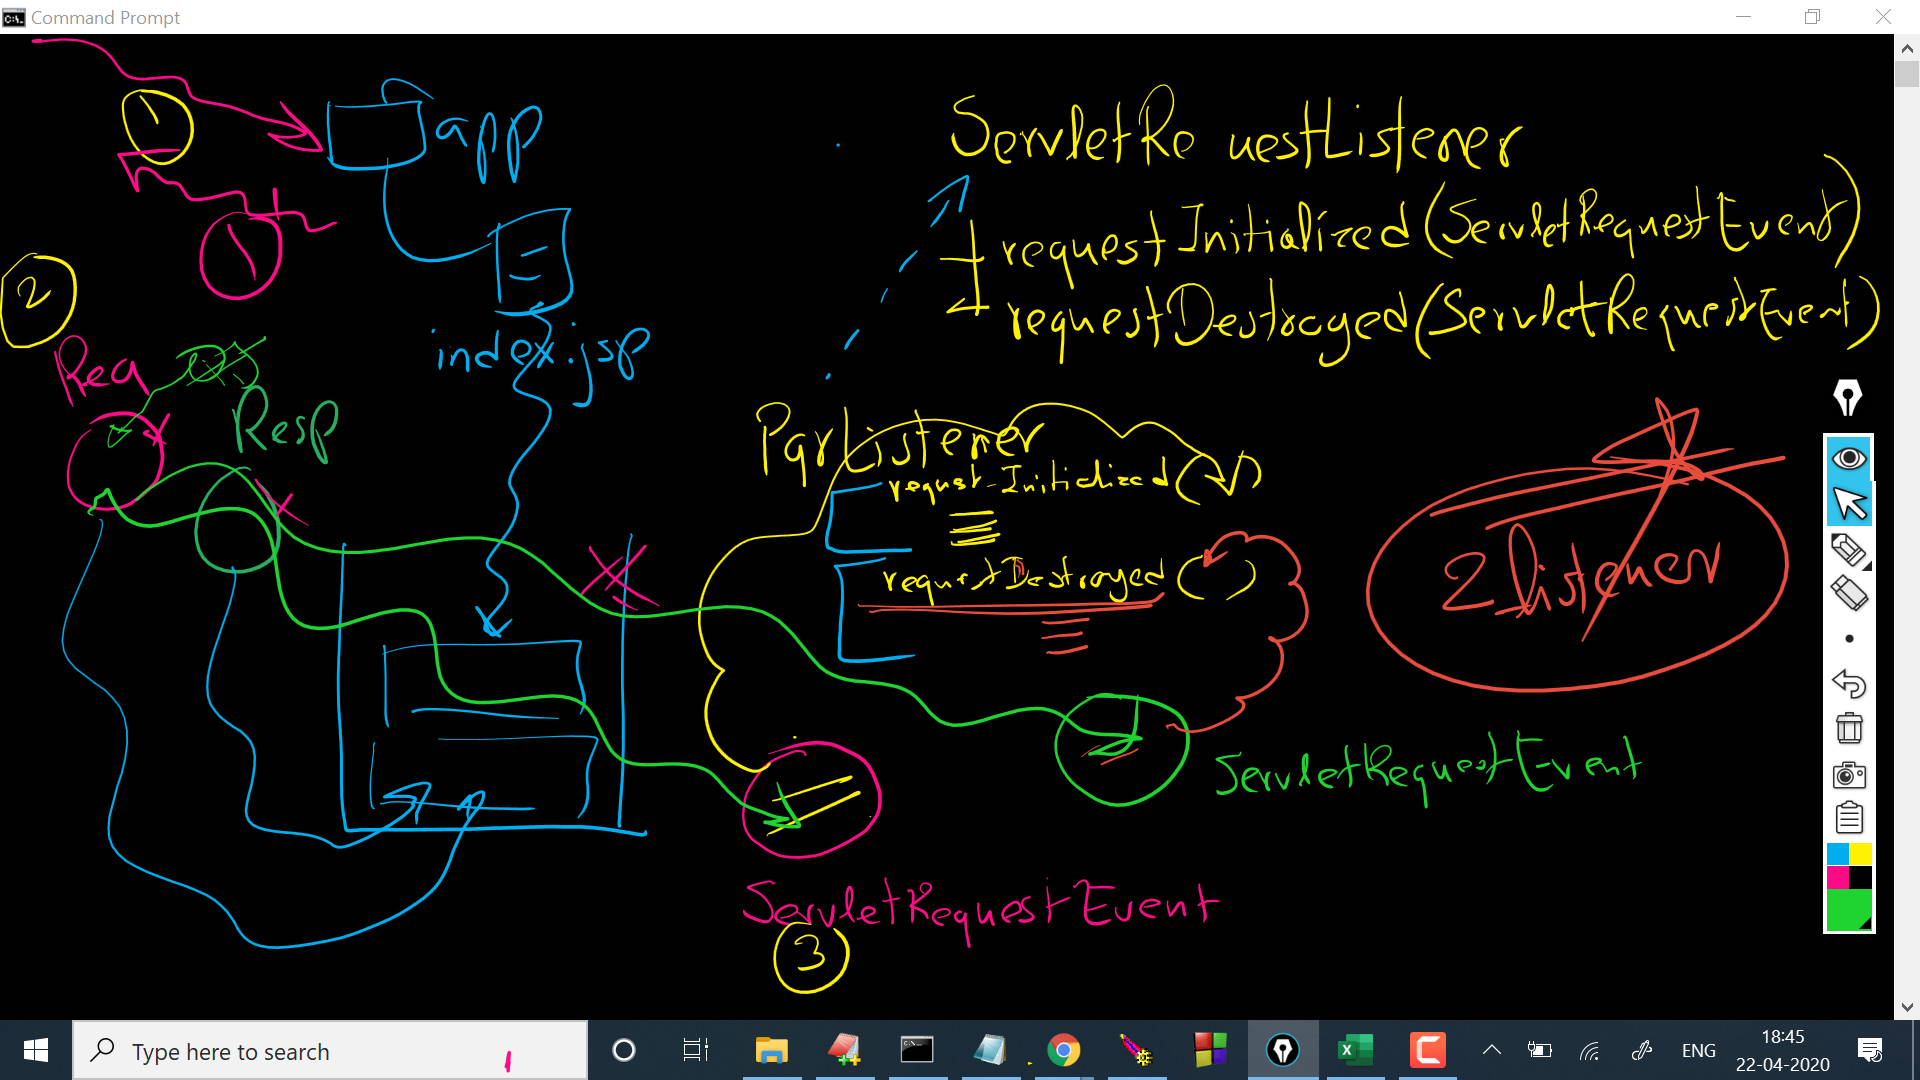 Command Prompt
1
app
ServletRe uestListener
requestInitialized(ServletRequestEvent)
requestDestroyed(ServletRequestEvent)
1
2
index.jsp
Req
Resp
ParListener
request-Initialized( )
requestDestroyed( )
2 listener
ServletRequestEvent
ServletRequestEvent
3
Type here to search
ENG
18:45
22-04-2020